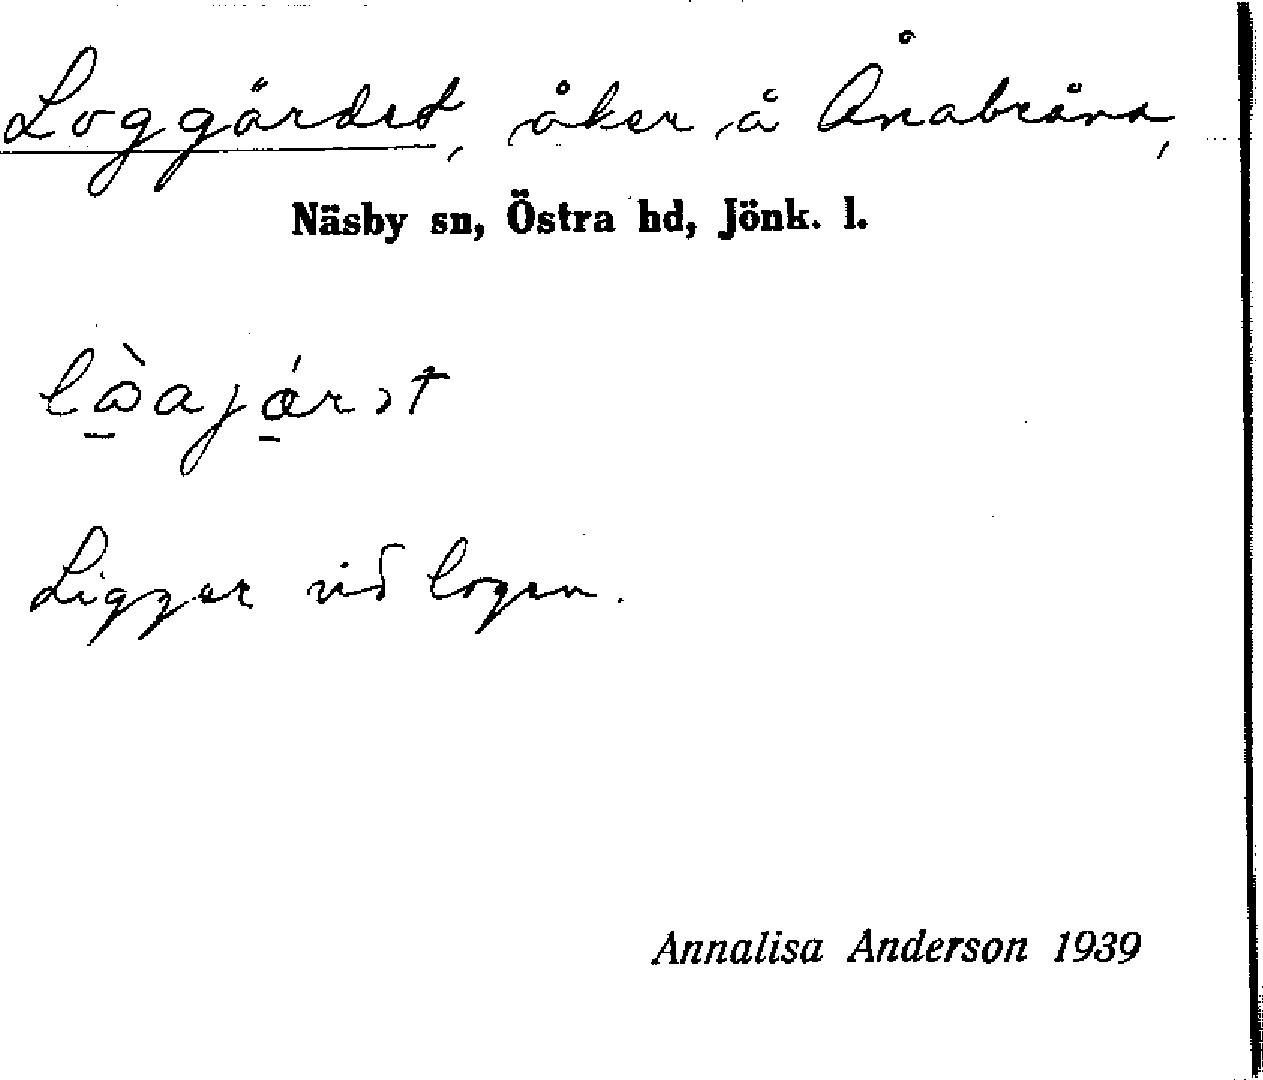 Loggärdet, åker å Ånabråna,
Näsby sn, Östra hd, Jönk. l.
Ligger vid logen.
Annalisa Anderson 1939